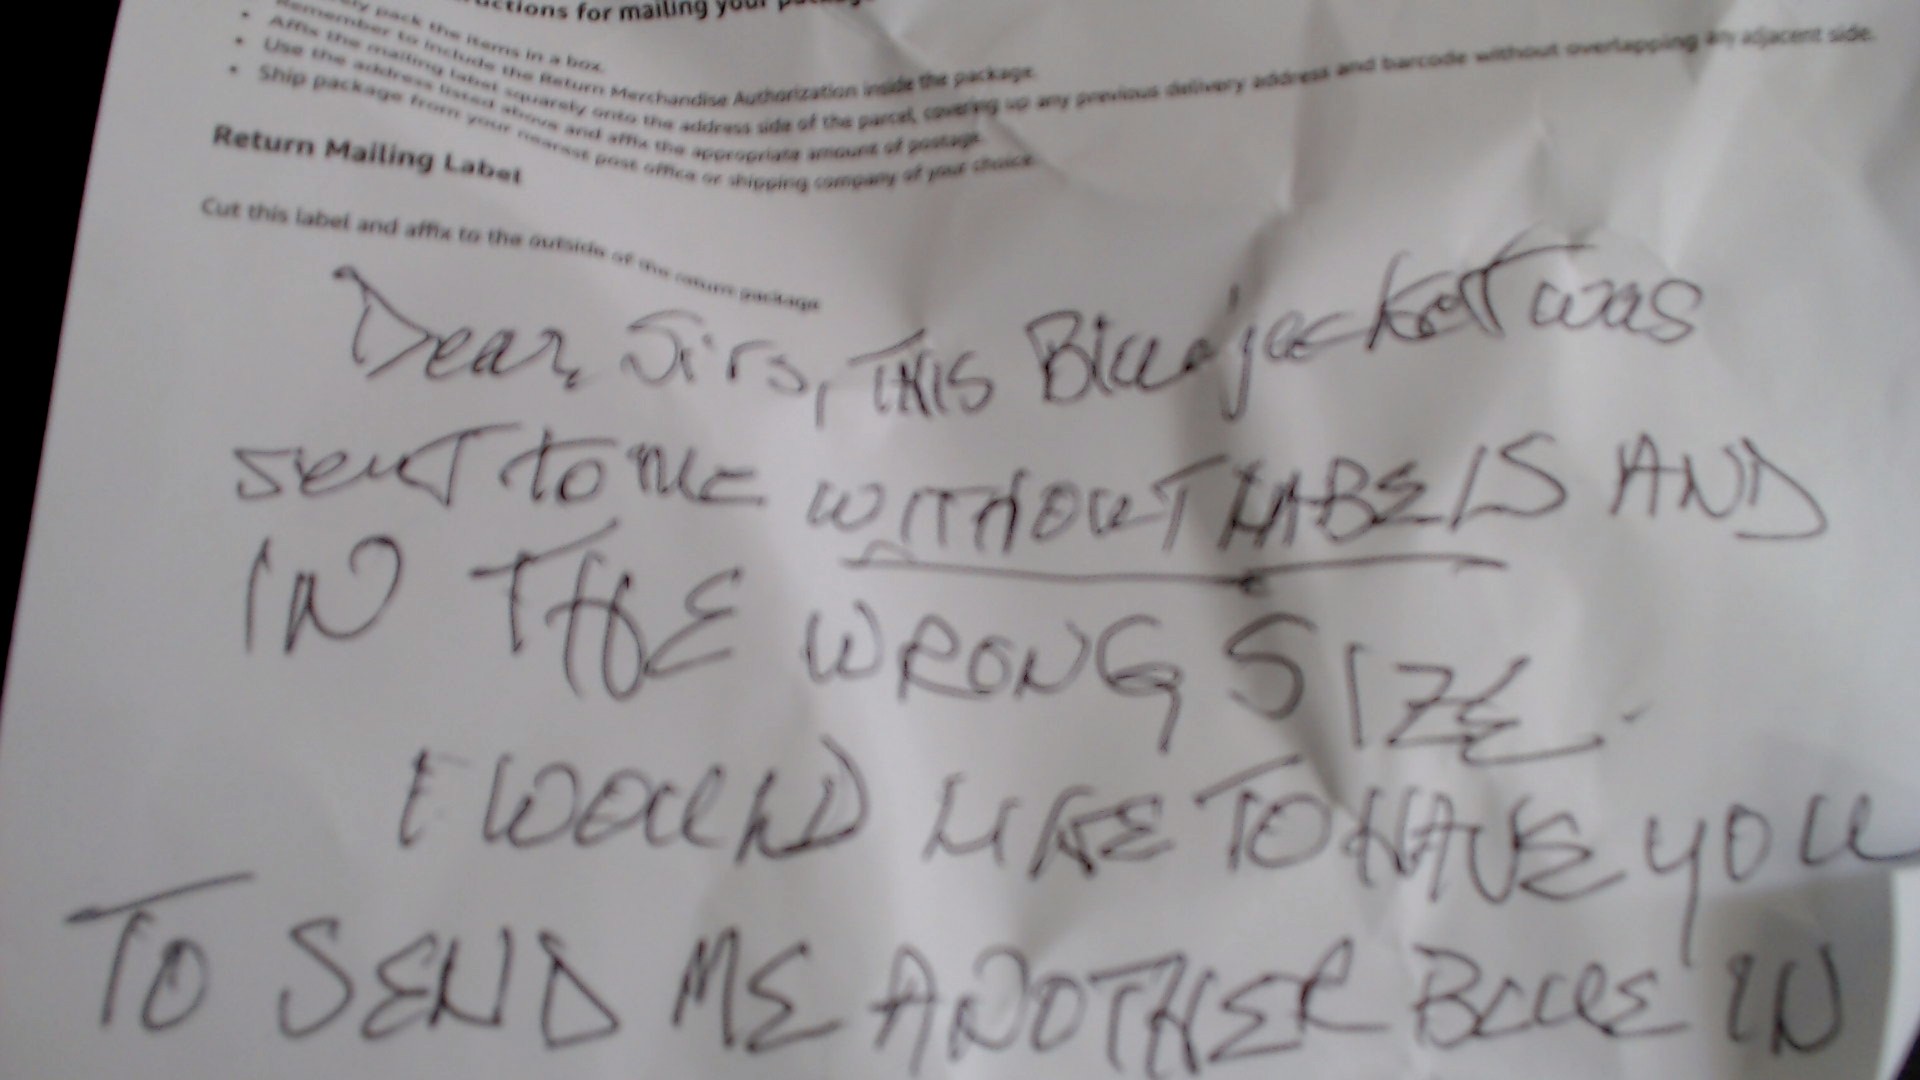 ctions for mailing your
ly pack the items in a box.
Remember to include the Return Merchandise Authorization inside the package.
Affix the mailing label squarely onto the address side of the parcel, covering up any previous delivery address and barcode without overlapping any adjacent side.
Use the address listed above and affix the appropriate amount of postage.
Ship package from your nearest post office or shipping company of your choice.
Return Mailing Label
Cut this label and affix to the outside of the return package
Dear, Sirs, THIS Blue jacket was
sent to me WITHOUT LABELS AND
IN THE WRONG SIZE.
I WOULD LIKE TO HAVE YOU
TO SEND ME ANOTHER BLUE IN